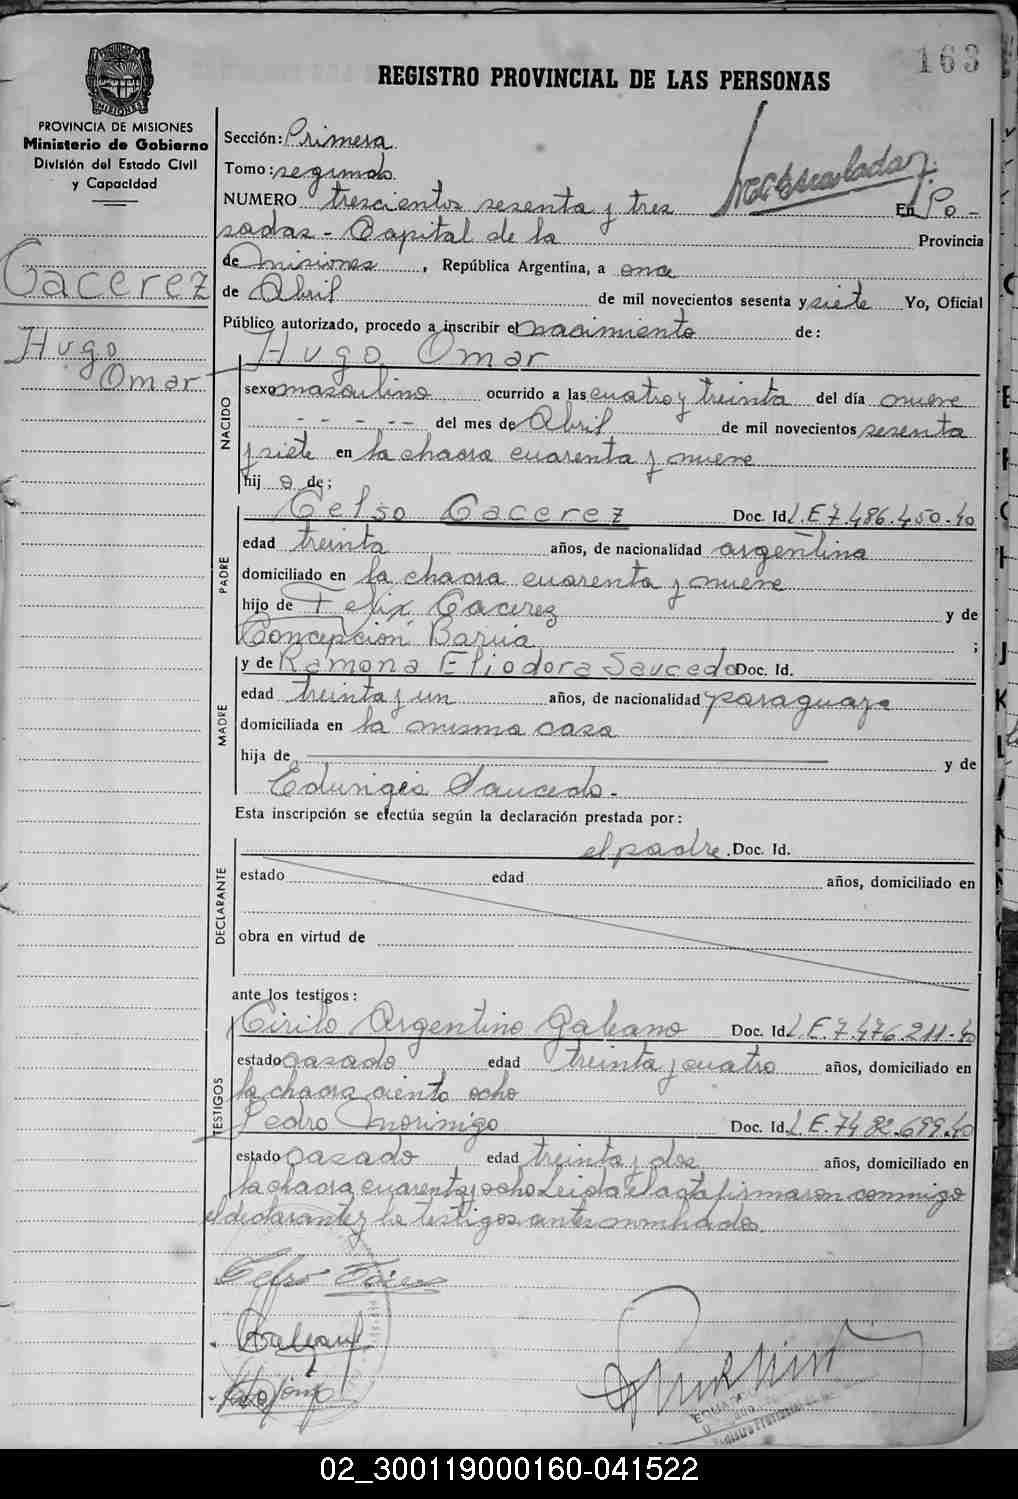 163
REGISTRO PROVINCIAL DE LAS PERSONAS
PROVINCIA DE MISIONES
Ministerio de Gobierno
División del Estado Civil
y Capacidad
Gacerez
Hugo
Omar
Sección: Primera
Tomo: segundo
NUMERO trescientos sesenta y tres En Po-
sadas - Capital de la Provincia
de Misiones, República Argentina, a once
de Abril de mil novecientos sesenta y siete Yo, Oficial
Público autorizado, procedo a inscribir el nacimiento de:
Hugo Omar
NACIDO
sexo masculino ocurrido a las cuatro y treinta del día nueve
- - - -- del mes de Abril de mil novecientos sesenta
y siete en la chacra cuarenta y nueve
hij o de;
PADRE
Celso Gacerez Doc. Id. L.E 7.486.450.40
edad treinta años, de nacionalidad argentina
domiciliado en la chacra cuarenta y nueve
hijo de Felix Gacerez y de
Concepción Barua ;
MADRE
y de Ramona Eliodora Saucedo Doc. Id.
edad treinta y un años, de nacionalidad paraguaya
domiciliada en la misma casa
hija de y de
Eduriges Saucedo.-
Esta inscripción se efectúa según la declaración prestada por:
DECLARANTE
el padre. Doc. Id.
estado edad años, domiciliado en
obra en virtud de
ante los testigos:
TESTIGOS
Cirilo Argentino Galeano Doc. Id. L.E.7.476.211.40
estado casado edad treinta y cuatro años, domiciliado en
la chacra ciento ocho
Pedro Morinigo Doc. Id. L.E.7482.699.40
estado casado edad treinta y dos años, domiciliado en
la chacra cuarenta y ocho Leida el acta firmaron conmigo
el declarante y los testigos antes nombrados.
02_300119000160-041522